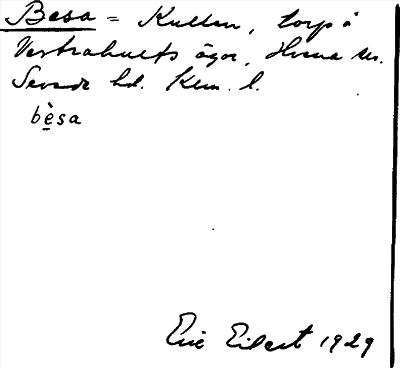 Besa = Kullen, torp å
Västrahults ägor, Hvena sn.
Sevede hd. Kalm. l.
bèsa
Eric Eilert 1929